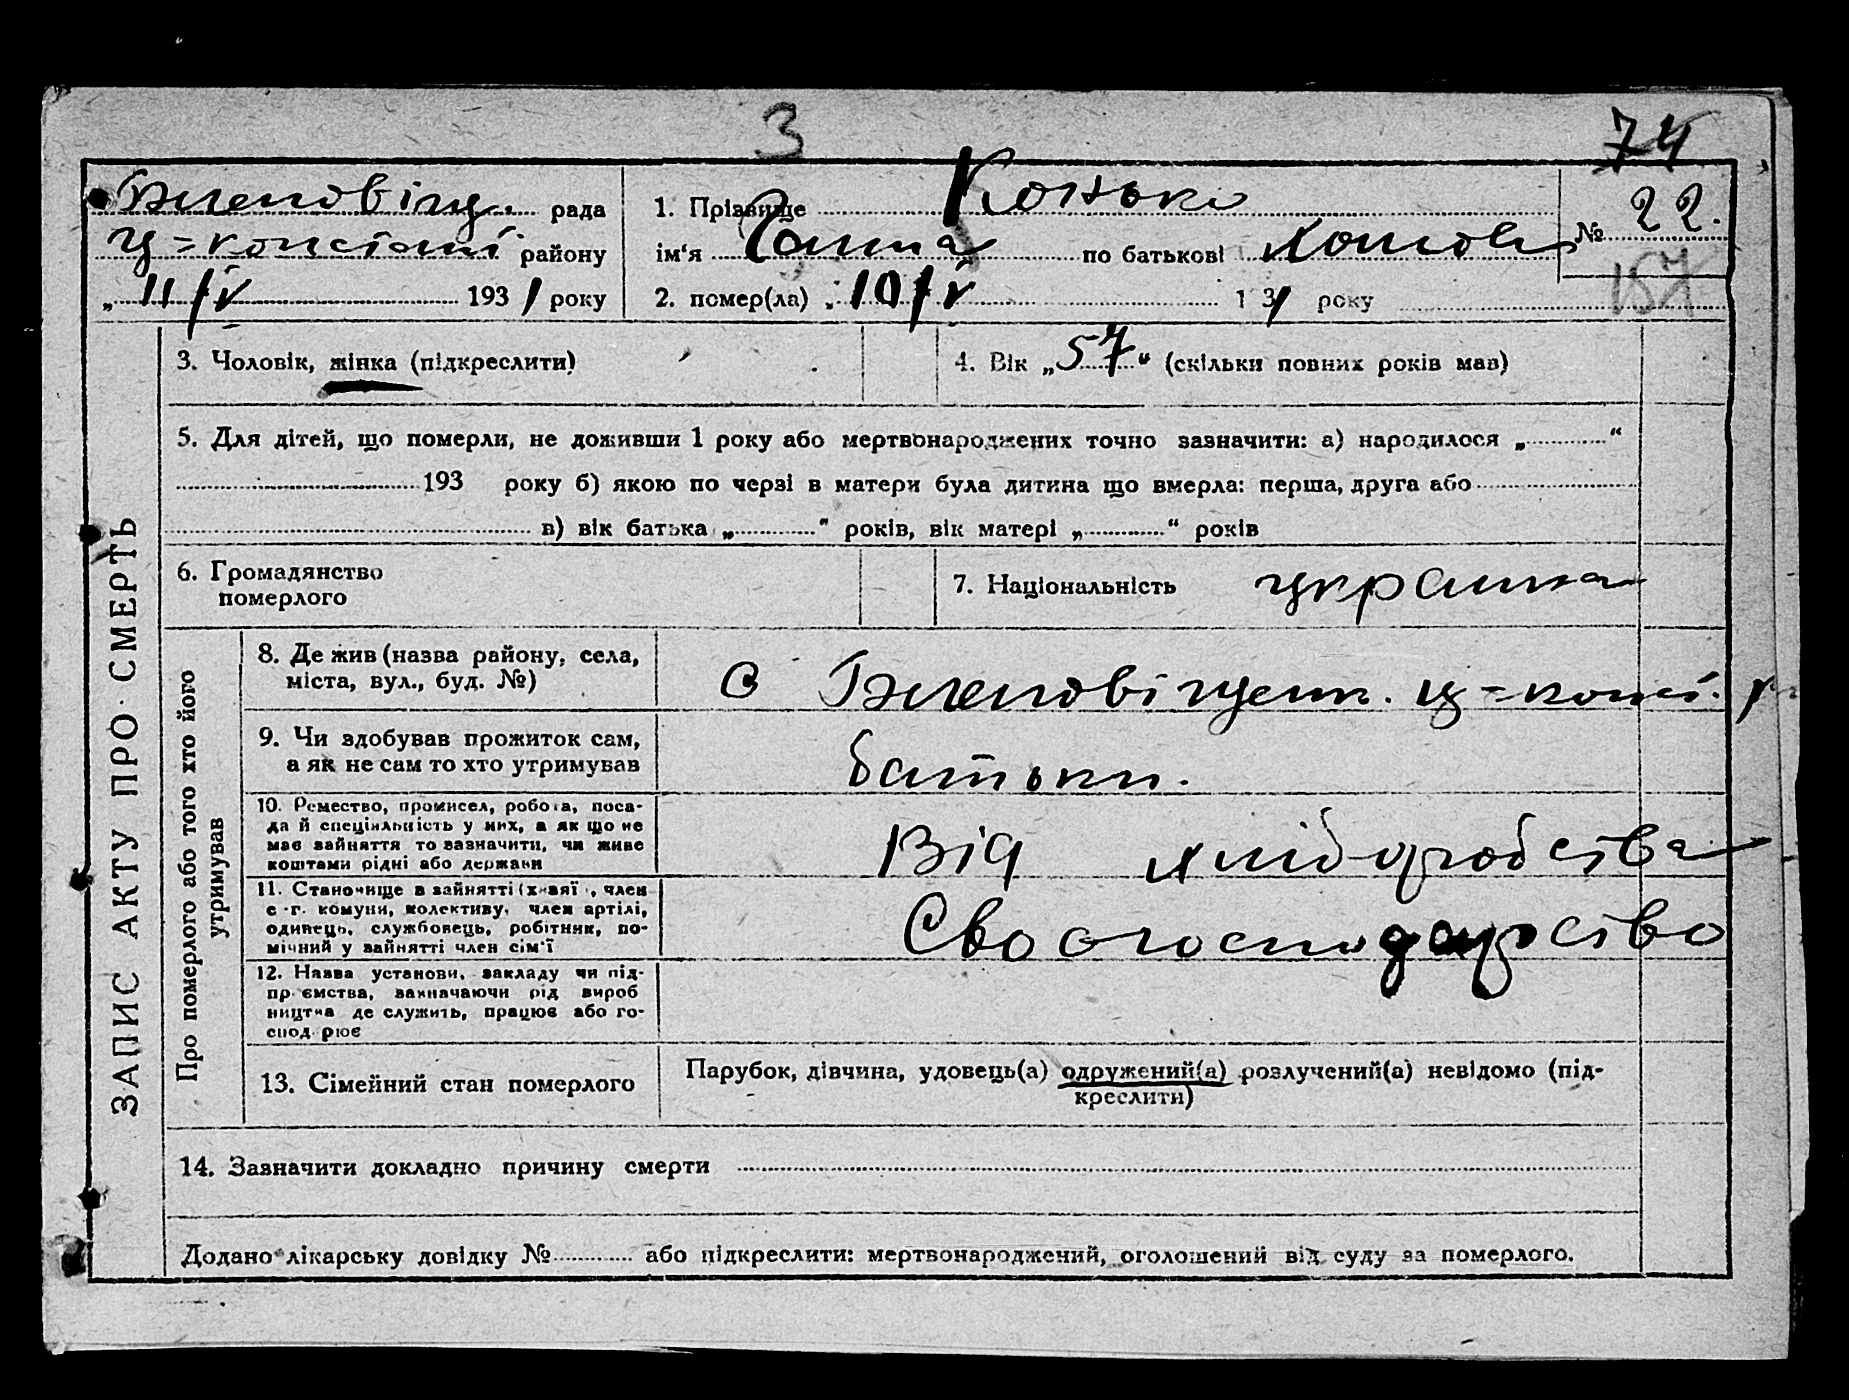 3
74
рада
1. Прізвище Конько
№ 22.
району
ім‘я Ганна по батькові
157
„ 11/V 1931 року
2. помер(ла) „ 10/V 1 31 року
3. Чоловік, жінка (підкреслити)
4. Вік „ 57 “ (скільки повних років мав)
5. Для дітей, що померли, не доживши 1 року або мертвонароджених точно зазначити: а) народилося „ “
193 року б) якою по черзі в матери була дитина що вмерла: перша, друга або
в) вік батька „ “ років, вік матері „ “ років
6. Громадянство
померлого
7. Національність украинка
ЗАПИС АКТУ ПРО СМЕРТЬ
Про померлого або того хто його
утримував
8. Де жив (назва району, села,
міста, вул., буд. №)
с
9. Чи здобував прожиток сам,
а як не сам то хто утримував
батьки.
10. Ремество, промисел, робота, поса-
да й спеціяльність у них, а як що не
має зайняття то зазначити, чи живе
коштами рідні або держави
Від хліборобства
11. Становище в зайнятті (хазяї, член
с.-г. комуни, колективу, член артілі,
одинець, службовець, робітник, по-
мічний у зайнятті член сім‘ї
Сво господарство
12. Назва установи, закладу чи під-
приємства, зазначаючи рід вироб
ництва де служить, працює або го-
сподарює
13. Сімейний стан померлого
Парубок, дівчина, удовець(а) одружений(а) розлучений(а) невідомо (під-
креслити)
14. Зазначити докладно причину смерти
Додано лікарську довідку № або підкреслити: мертвонароджений, оголошений від суду за померлого.